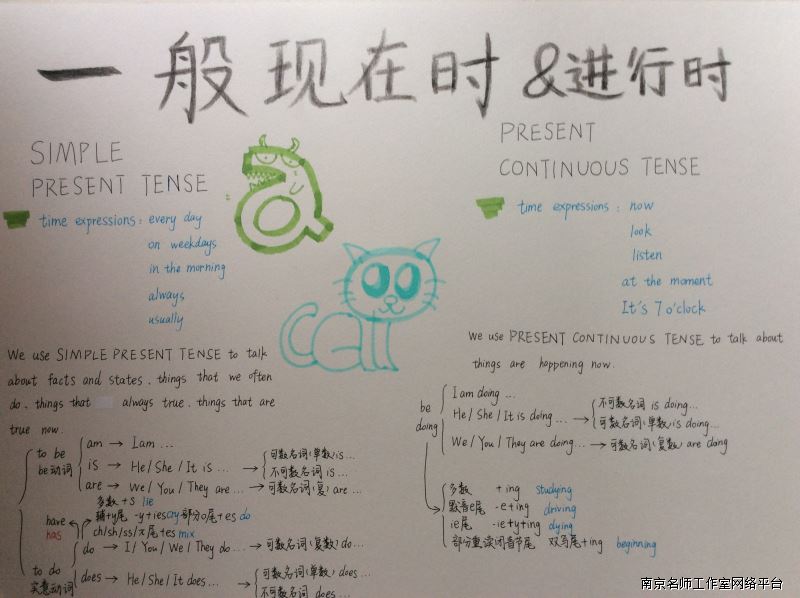 一般现在时 &进行时
SIMPLE
PRESENT TENSE
time expressions: every day
on weekdays
in the morning
always
usually
We use SIMPLE PRESENT TENSE to talk
about facts and states, things that we often
do, things that always true, things that are
true now.
to be
be动词
am → I am ...
is → He / She / It is ... →
可数名词(单数)is...
不可数名词 is...
are → We / You / They are ... → 可数名词(复) are ...
多数 +s lie
辅+y尾 -y+ies cry 部分o尾+es do
ch/sh/ss/x尾+es mix
have
has
to do
实意动词
do → I / You / We / They do ... → 可数名词(复数) do...
does → He / She / It does... →
可数名词(单数) does ...
不可数名词 does...
PRESENT
CONTINUOUS TENSE
time expressions : now
look
listen
at the moment
It's 7 o'clock
We use PRESENT CONTINUOUS TENSE to talk about
things are happening now.
be
doing
I am doing ...
He / She / It is doing... →
不可数名词 is doing...
可数名词(单数) is doing...
We / You / They are doing... → 可数名词(复数) are doing
多数 +ing studying
默音e尾 -e+ing driving
ie尾 -ie+y+ing dying
部分重读闭音节尾 双写尾+ing beginning
南京名师工作室网络平台